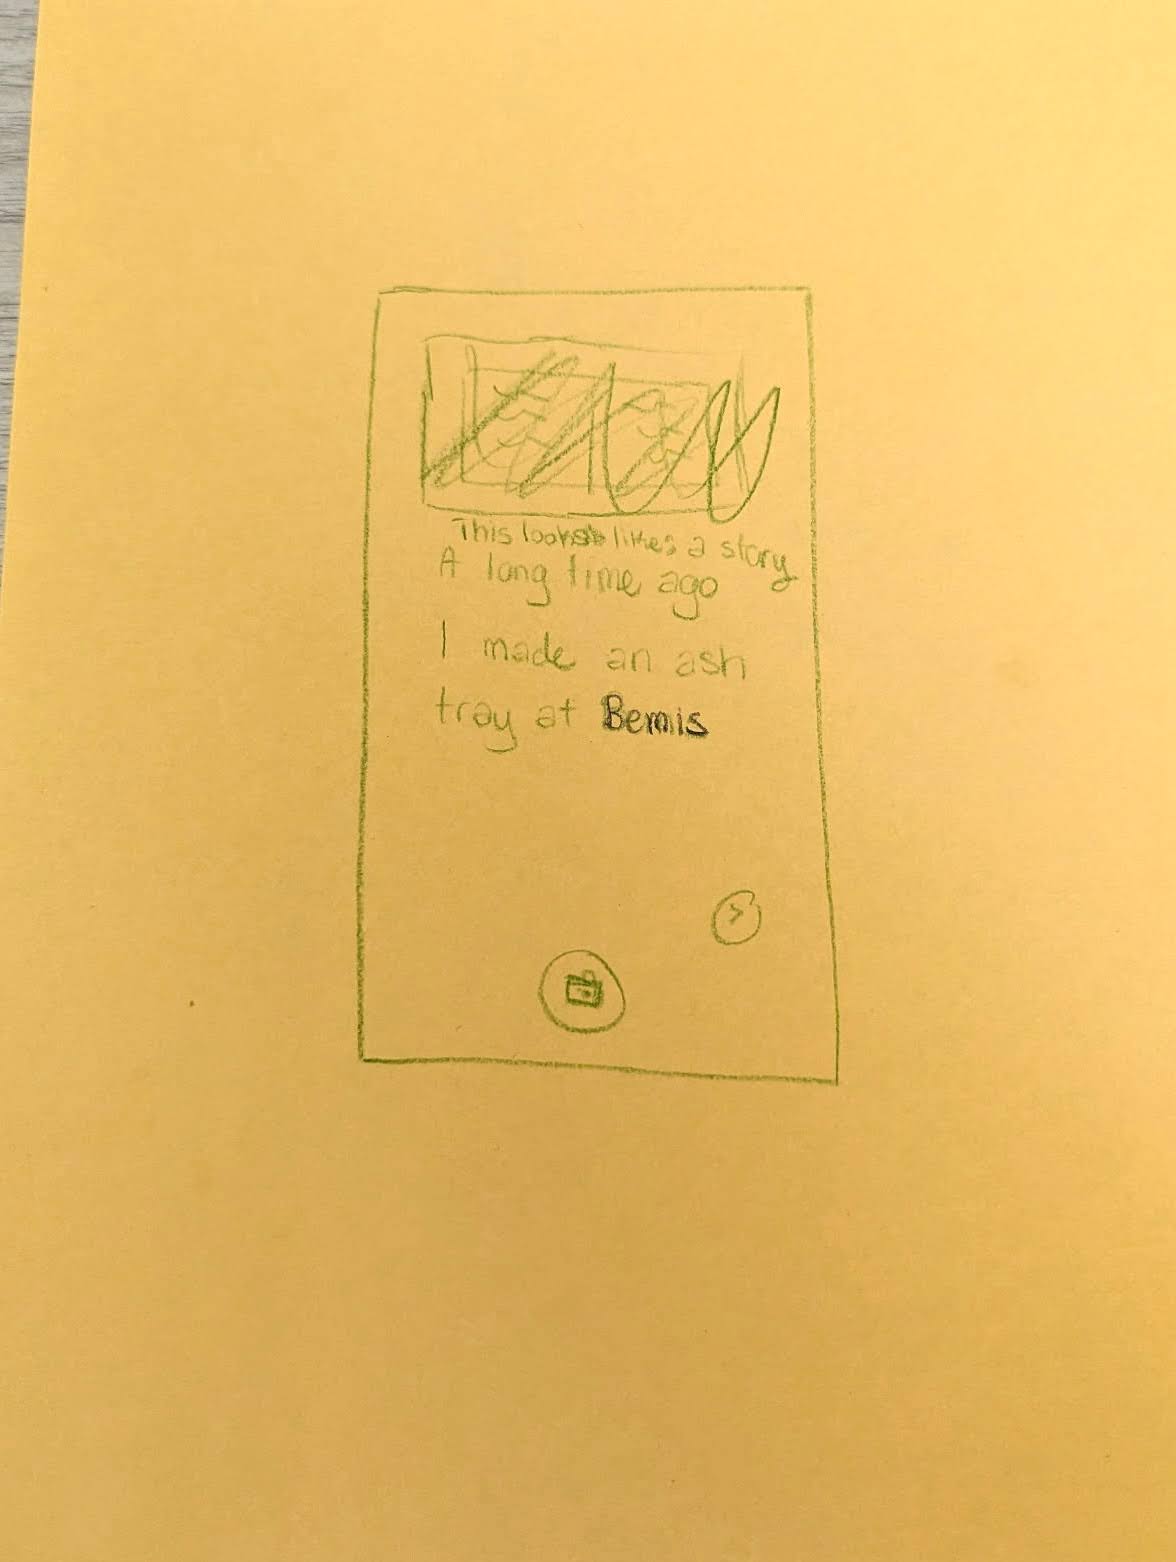 This looks likes a story
A long time ago
I made an ash
tray at Bemis
>